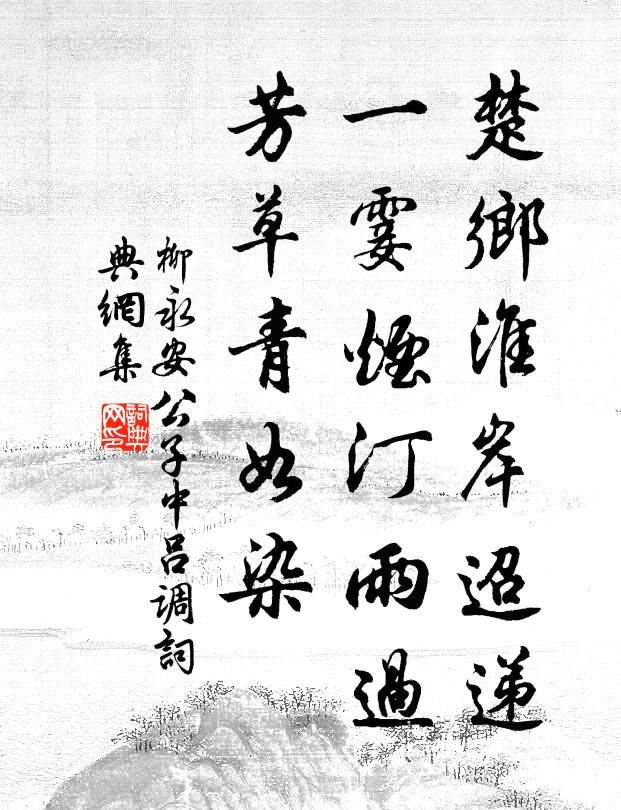 楚鄉淮岸迢遞
一霎煙汀雨過
芳草青如染
柳永安公子中呂调詞
典網集
詞典网印